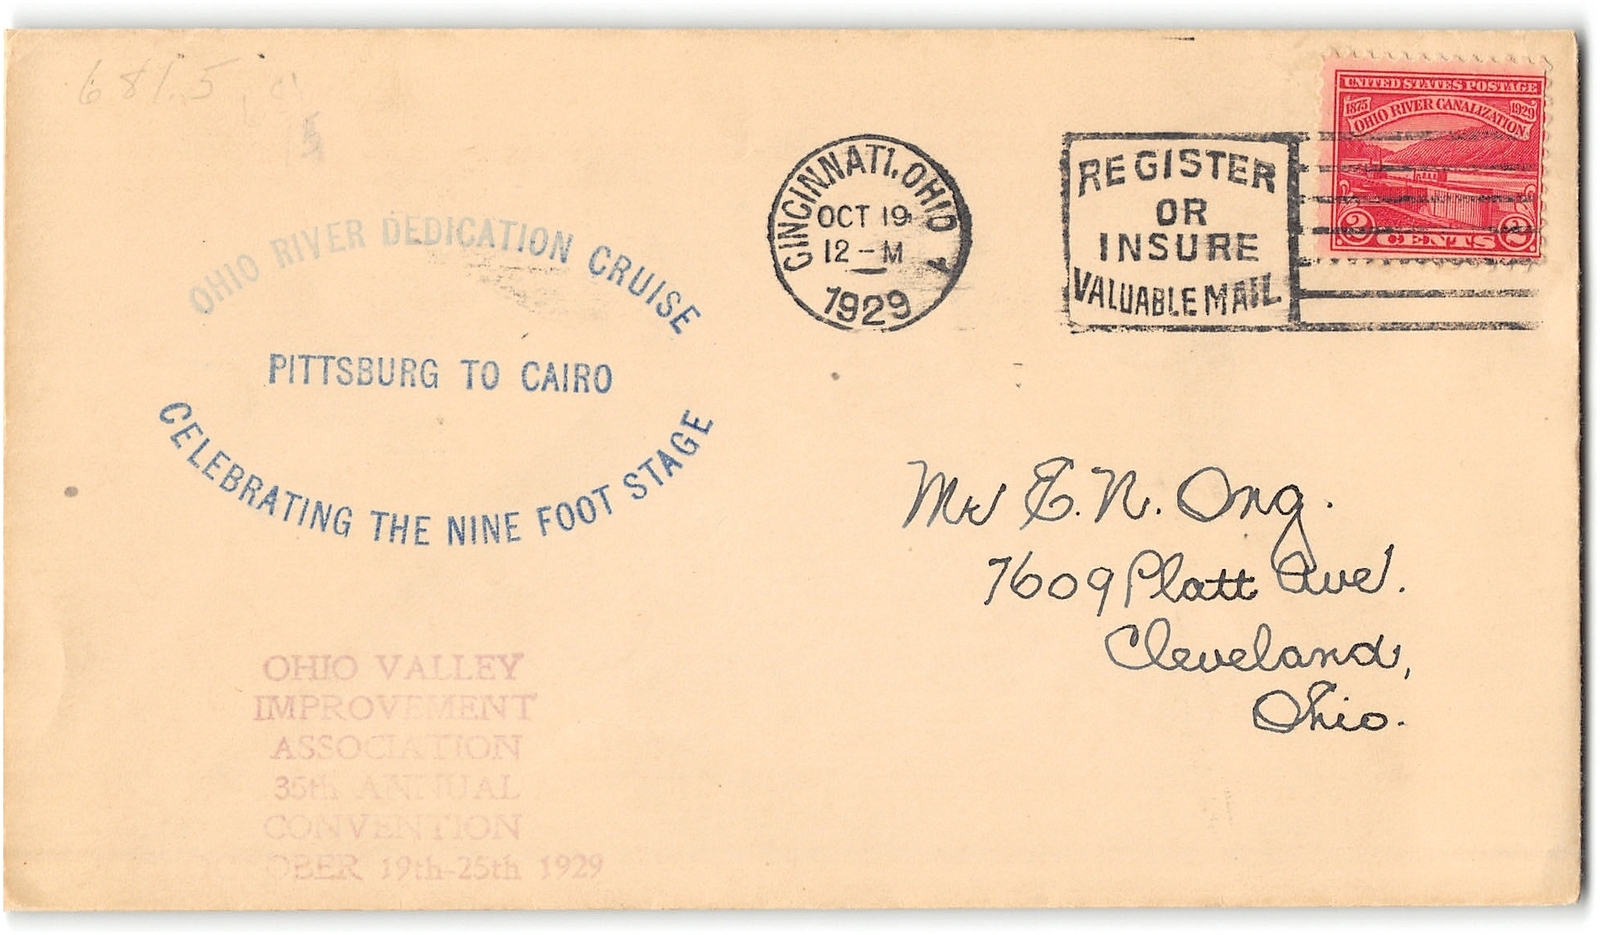 681.5
UNITED STATES POSTAGE
1875 1929
OHIO RIVER CANALIZATION
2 CENTS 2
CINCINNATI, OHIO
OCT 19
12 - M
1929
1
REGISTER
OR
INSURE
VALUABLE MAIL
OHIO RIVER DEDICATION CRUISE
PITTSBURG TO CAIRO
CELEBRATING THE NINE FOOT STAGE
Mr E. N. Ong.
7609 Platt Ave.
Cleveland,
Ohio.
OHIO VALLEY
IMPROVEMENT
ASSOCIATION
35th ANNUAL
CONVENTION
OBER 19th-25th 1929